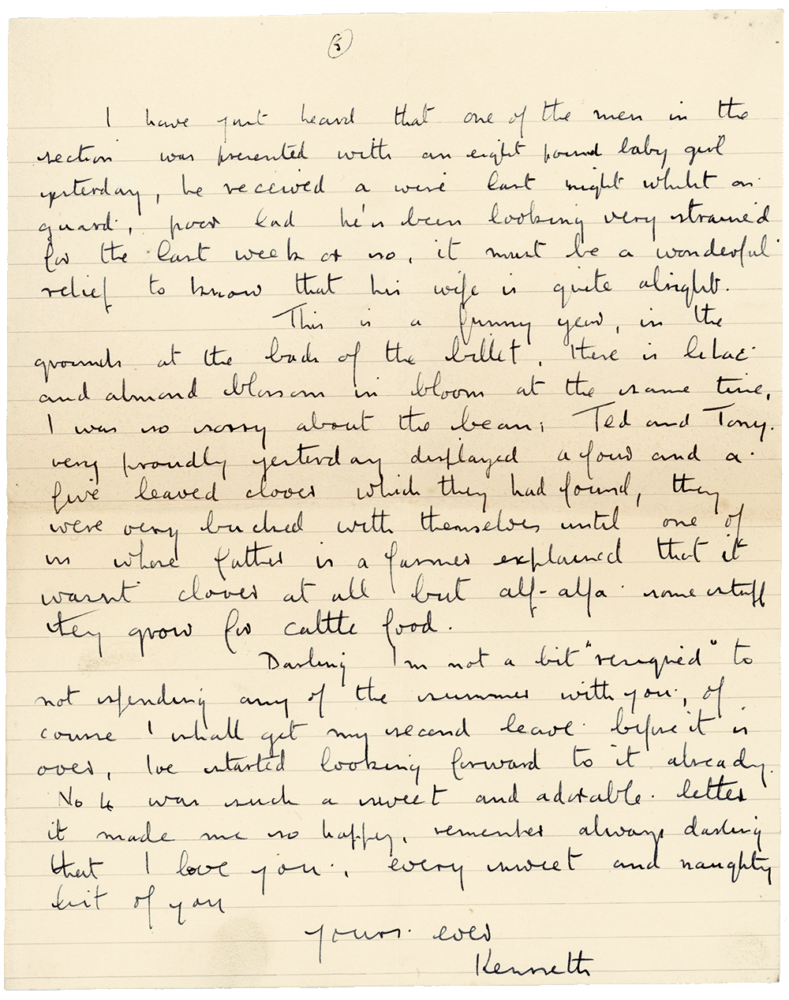 5
I have just heard that one of the men in the
section was presented with an eight pound baby girl
yesterday, he received a wire last night whilst on
guard, poor lad he's been looking very strained
for the last week or so, it must be a wonderful
relief to know that his wife is quite alright.
This is a funny year, in the
grounds at the back of the billet, there is lilac
and almond blossom in bloom at the same time,
I was so sorry about the beans; Ted and Tony.
very proudly yesterday displayed a four and a
five leaved clover which they had found, they
were very bucked with themselves until one of
us whose father is a farmer explained that it
wasn't clover at all but alf-alfa some stuff
they grow for cattle food.
Darling I'm not a bit "resigned" to
not spending any of the summer with you, of
course I shall get my second leave before it is
over, I've started looking forward to it already.
No was such a sweet and adorable letter
it made me so happy, remember always darling
that I love you, every sweet and naughty
bit of you
yours ever
Kenneth